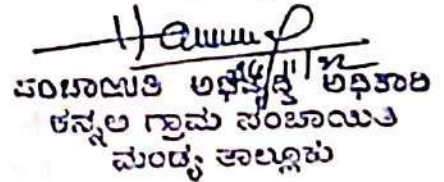 ಪಂಚಾಯಿತಿ ಅಭಿವೃದ್ಧಿ ಅಧಿಕಾರಿ
ಗ್ರಾಮ ಪಂಚಾಯಿತಿ
ಮಂಡ್ಯ ತಾಲ್ಲೂಕು